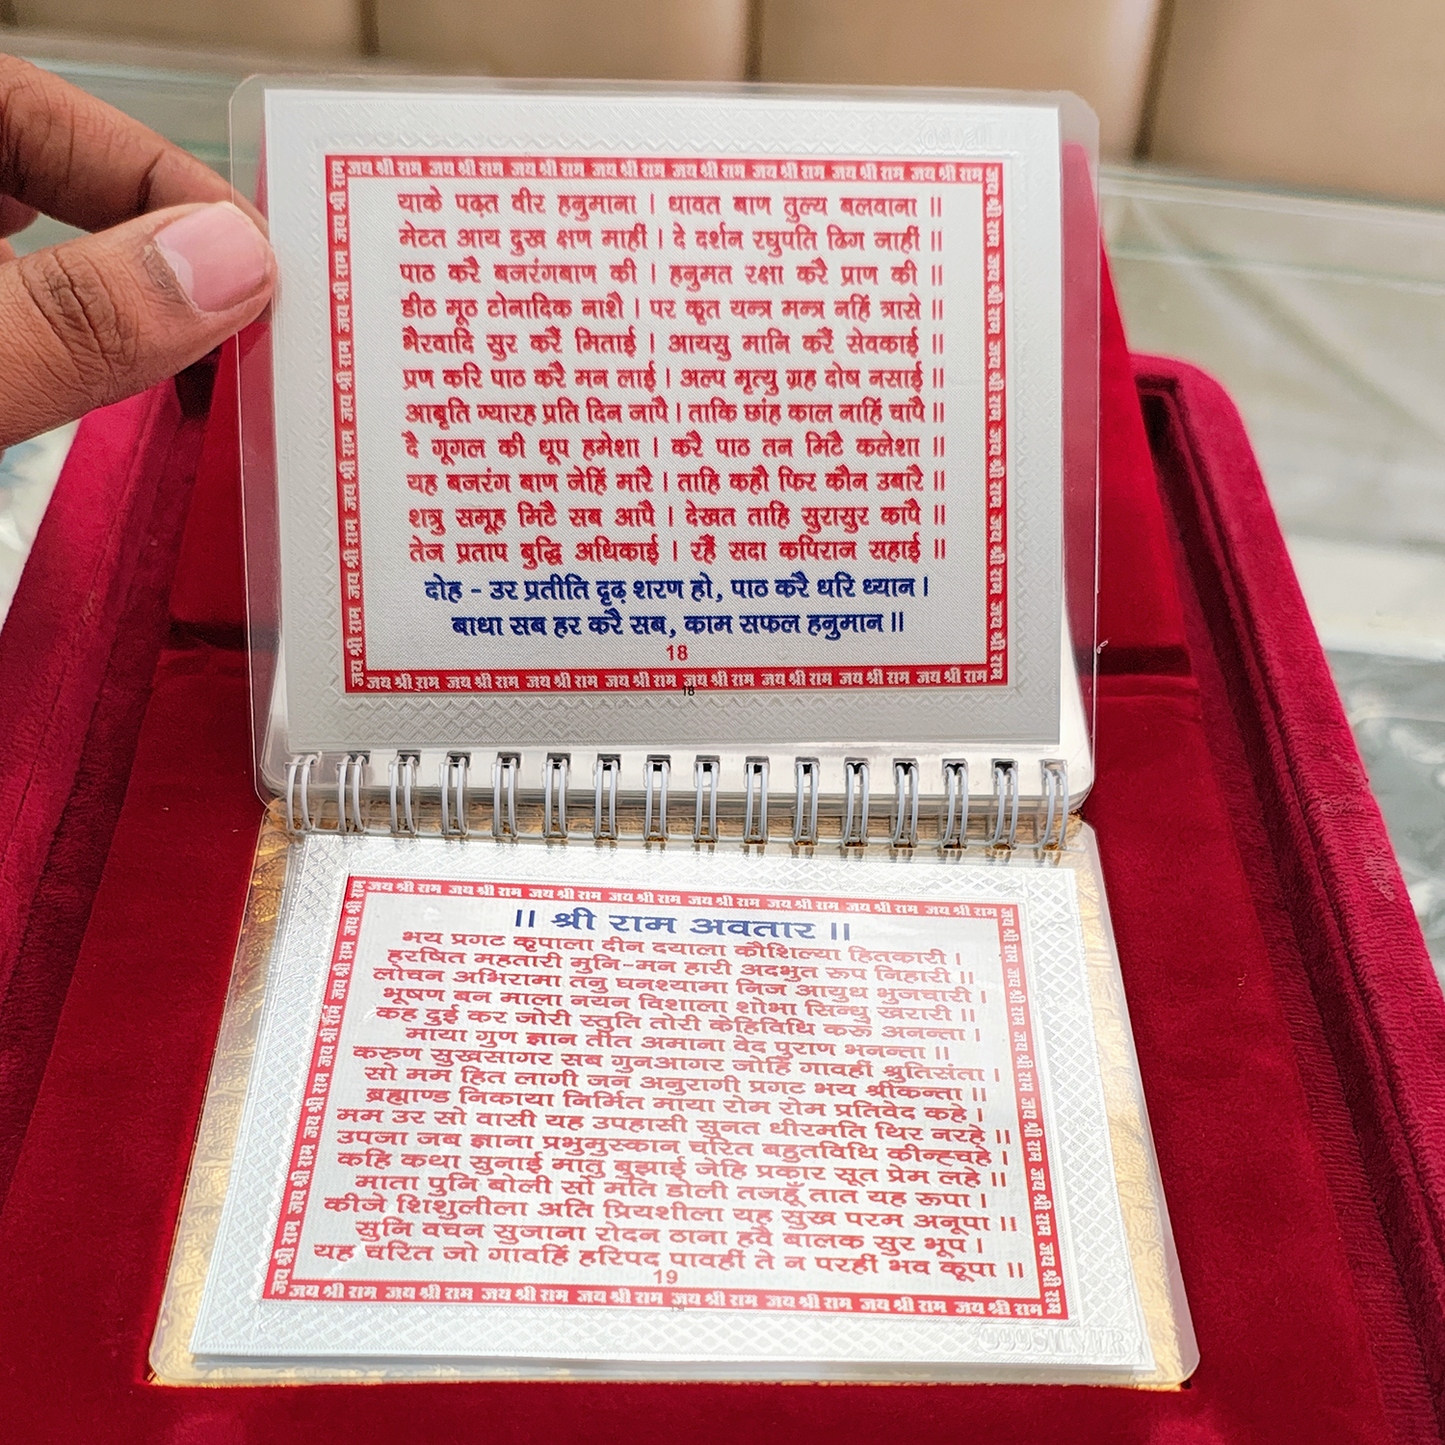 जय श्री राम जय श्री राम जय श्री राम जय श्री राम जय श्री राम जय श्री राम जय श्री राम जय श्री राम
याके पढ़त वीर हनुमाना । धावत बाण तुल्य बलवाना ॥
मेटत आय दुख क्षण माहीं । दे दर्शन रघुपति ढिग जाहीं ॥
पाठ करै बजरंगबाण की । हनुमत रक्षा करै प्राण की ॥
डीठ मूठ टोनादिक नाशै । पर कृत यन्त्र मन्त्र नहिं त्रासे ॥
भैरवादि सुर करैं मिताई । आयसु मानि करैं सेवकाई ॥
प्रण करि पाठ करै मन लाई । अल्प मृत्यु ग्रह दोष नसाई ॥
आबृति ग्यारह प्रति दिन जापै । ताकि छांह काल नाहिं चापै ॥
दै गूगल की धूप हमेशा । करै पाठ तन मिटै कलेशा ॥
यह बजरंग बाण जेहिं मारै । ताहि कहौ फिर कौन उबारै ॥
शत्रु समूह मिटै सब आपै । देखत ताहि सुरासुर कापै ॥
तेज प्रताप बुद्धि अधिकाई । रहैं सदा कपिराज सहाई ॥
दोह - उर प्रतीति दृढ़ शरण हो, पाठ करै धरि ध्यान ।
बाधा सब हर करै सब, काम सफल हनुमान ॥
18
जय श्री राम जय श्री राम जय श्री राम जय श्री राम जय श्री राम जय श्री राम जय श्री राम जय श्री राम
18
जय श्री राम जय श्री राम जय श्री राम जय श्री राम जय श्री राम जय श्री राम जय श्री राम जय श्री राम
॥ श्री राम अवतार ॥
भय प्रगट कृपाला दीन दयाला कौशिल्या हितकारी ।
हरषित महतारी मुनि-मन हारी अदभुत रूप निहारी ॥
लोचन अभिरामा तनु घनश्यामा निज आयुध भुजचारी ।
भूषण बन माला नयन विशाला शोभा सिन्धु खरारी ॥
कह दुई कर जोरी स्तुति तोरी केहिविधि करूं अनन्ता ।
माया गुण ज्ञान तीत अमाना वेद पुराण भनन्ता ॥
करुण सुखसागर सब गुनआगर जोहिं गावहीं श्रुतिसंता ।
सो मम हित लागी जन अनुरागी प्रगट भय श्रीकन्ता ॥
ब्रह्माण्ड निकाया निर्मित माया रोम रोम प्रतिवेद कहे ।
मम उर सो वासी यह उपहासी सुनत धीरमति थिर नरहे ॥
उपजा जब ज्ञाना प्रभुमुस्कान चरित बहुतविधि कीन्हचहे ।
कहि कथा सुनाई मातु बुझाई जेहि प्रकार सूत प्रेम लहे ॥
माता पुनि बोली सो मति डोली तजहूँ तात यह रूपा ।
कीजे शिशुलीला अति प्रियशीला यह सुख परम अनूपा ॥
सुनि वचन सुजाना रोदन ठाना हवै बालक सुर भूप ।
यह चरित जो गावहिं हरिपद पावहीं ते न परहीं भव कूपा ॥
19
जय श्री राम जय श्री राम जय श्री राम जय श्री राम जय श्री राम जय श्री राम जय श्री राम जय श्री राम